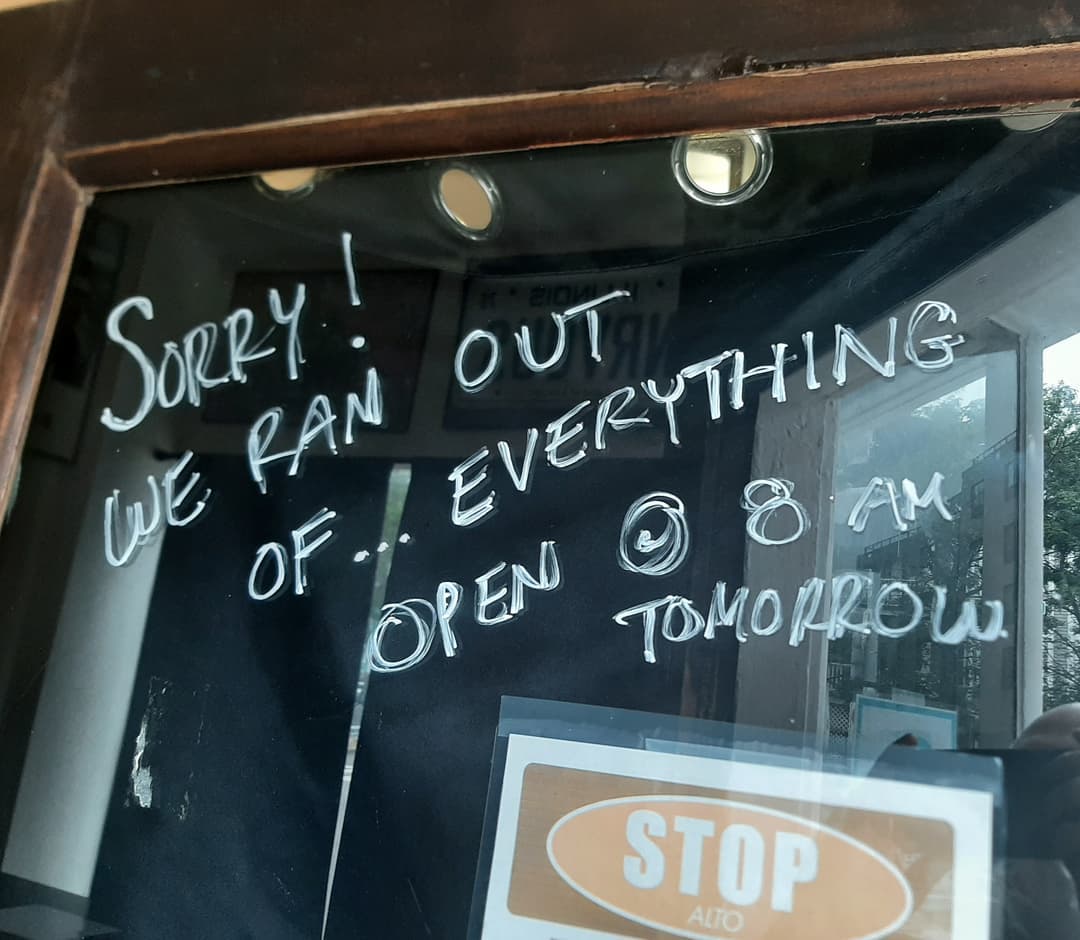 SORRY!
WE RAN OUT
OF... EVERYTHING
OPEN @ 8 AM
TOMORROW.
ILLINOIS
STOP
ALTO